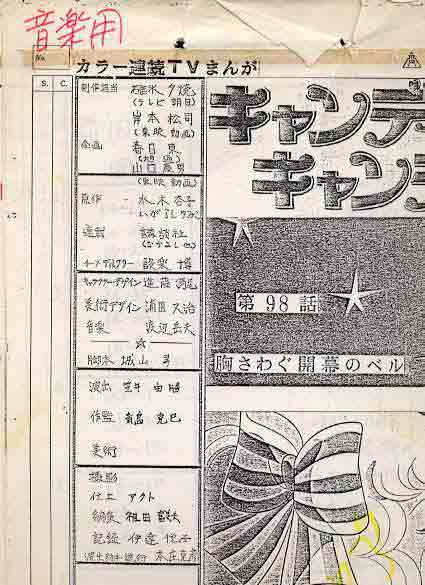 音楽用
No.
カラー連続TVまんが
S. C.
制作担当
(テレビ朝日)
岸本松司
(東映動画)
企画 春日東
(旭通)
(東映動画)
原作 水木杏子
いがらしゆみこ
連載 講談社
(なかよし他)
チーフディレクター 設楽博
キャラクターデザイン 進藤満尾
美術デザイン 浦田又治
音楽 渡辺岳夫
☆
脚本 城山昇
演出
作監 青島克已
美術
撮影
仕上 アクト
編集 祖田
記録 伊達悦子
キャンディ
キャンデ
第98話
胸さわぐ開幕のベル